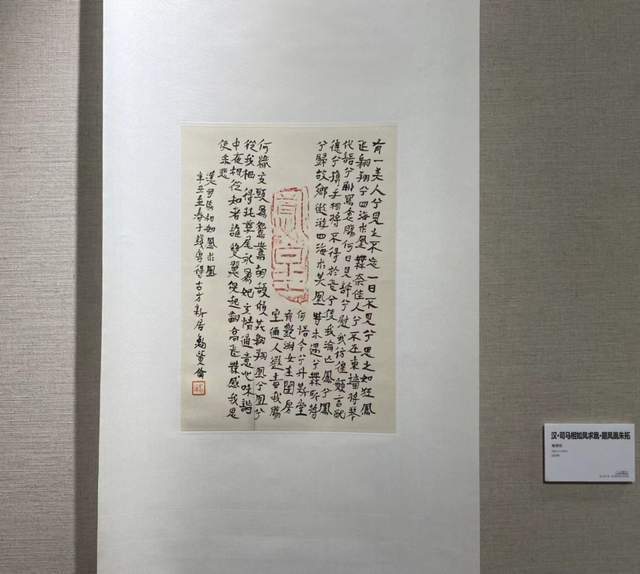 有一美人兮見之不忘一日不見兮思之如狂鳳
飛翱翔兮四海求凰無奈佳人兮不在東牆將琴
代語兮聊寫衷腸何日見許兮慰我彷徨願言配
德兮攜手相將不得於飛兮使我淪亡鳳兮鳳
兮歸故鄉遨遊四海求其凰時未遇兮無所將
何悟今兮升斯堂
有艷淑女在閨房
室邇人遐毒我腸
何緣交頸爲鴛鴦胡頡頏兮共翱翔凰兮凰兮
從我棲得託孳尾永爲妃交情通意心和諧
中夜相從知者誰雙翼俱起翻高飛無感我思
使余悲
漢司馬相如鳳求凰
辛丑孟春于
汉·司马相如凤求凰·题凤凰朱拓